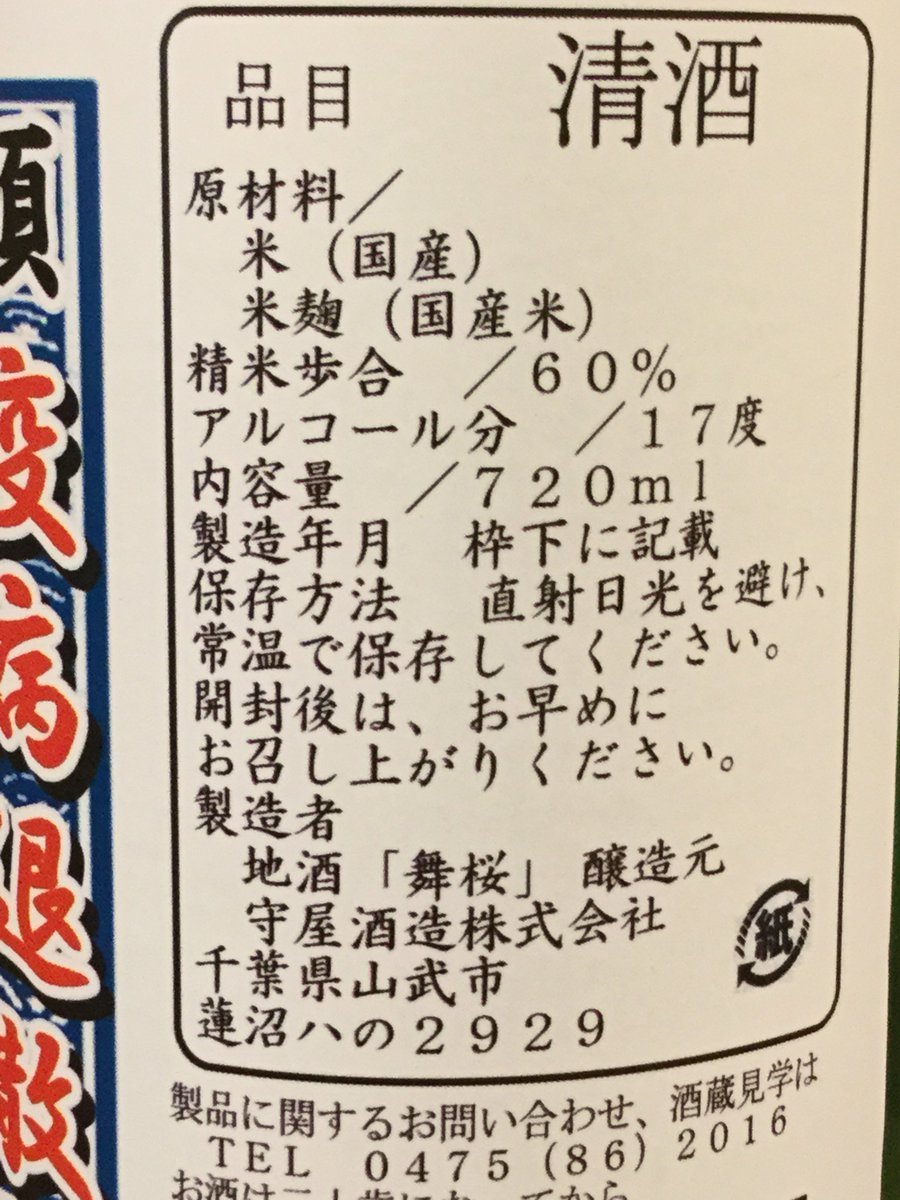 品目 清酒
原材料／
米（国産）
米麹（国産米）
精米歩合 ／６０％
アルコール分 ／１７度
内容量 ／７２０ｍｌ
製造年月 枠下に記載
保存方法 直射日光を避け、
常温で保存してください。
開封後は、お早めに
お召し上がりください。
製造者
地酒「舞桜」醸造元
守屋酒造株式会社
千葉県山武市
蓮沼ハの２９２９
紙
製品に関するお問い合わせ、酒蔵見学は
ＴＥＬ ０４７５（８６）２０１６
疫病退散